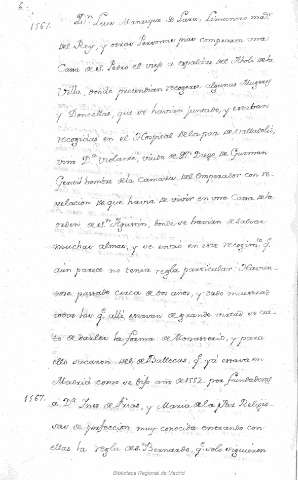 6.
1561.
Dn. Luis Manrique de Lara, Limosnero mor.
del Rey, y otras Personas pias compraron una
Casa de Sn. Pedro el viejo a espaldas del Hosl. de la
Villa, donde pretendian recogerse algunas Mugeres
y Doncellas, que se havian juntado, y estaban
recogidas en el Hospital de la paz de Valladolid,
una Da. Violante, viuda de Dn. Diego de Guzman
Gentil hombre de la Camara del Emperador con re-
velacion de que havia de vivir en una Casa de la
orden de Sn. Agustin, donde se havian de salvar
muchas almas, y se entró en este recogimto. q.
aun parece no tenia regla particular. Havien-
dose pasado cerca de dos años, y
todas las q. alli estavan de grande se tra-
to de darles la forma de Monasterio, y para
ello sacaron del de Ballecas, q. ya estava en
Madrid como se dijo año de 1552. por fundadoras
1567.
a Da. Ines de, y Maria de la Paz Religio-
sas de perfeccion muy conocida entrando con
ellas la regla de Sn. Bernardo, q. solo siguieron
Biblioteca Regional de Madrid